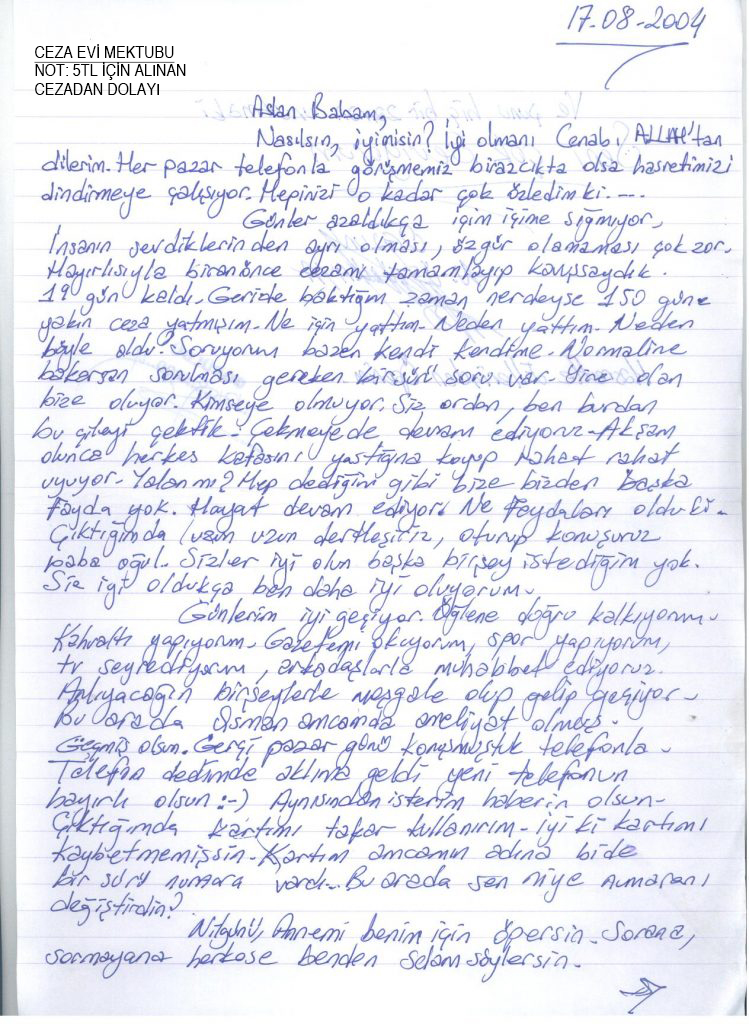 17-08-2004
CEZA EVİ MEKTUBU
NOT: 5TL İÇİN ALINAN
CEZADAN DOLAYI
Aslan Babam,
Nasılsın, iyimisin? İyi olmanı Cenabı ALLAH'tan
dilerim. Her pazar telefonla görüşmemiz birazcıkta olsa hasretimizi
dindirmeye çalışıyor. Hepinizi o kadar çok özledim ki. ---
Günler azaldıkça içim içime sığmıyor,
İnsanın sevdiklerinden ayrı olması, özgür olamaması çok zor.
Hayırlısıyla biranönce cezamı tamamlayıp kavuşsaydık.
19 gün kaldı. Geride baktığım zaman nerdeyse 150 güne
yakın ceza yatmışım. Ne için yattım. Neden yattım. Neden
böyle oldu. Soruyorum bazen kendi kendime. Normaline
bakarsan sorulması gereken birsürü soru var. Yine olan
bize oluyor. Kimseye olmuyor. Siz ordan, ben burdan
bu çileyi çektik. Çekmeyede devam ediyoruz. Akşam
olunca herkes kafasını yastığına koyup rahat rahat
uyuyor. Yalan mı? Hep dediğim gibi bize bizden başka
fayda yok. Hayat devam ediyor. Ne feydaları oldu ki.
Çıktığımda uzun uzun dertleşiriz, oturup konuşuruz
baba oğul. Sizler iyi olun başka birşey istediğim yok.
Siz iyi oldukça ben daha iyi oluyorum.
Günlerim iyi geçiyor. Öğlene doğru kalkıyorum.
Kahvaltı yapıyorum. Gazetemi okuyorum, spor yapıyorum,
tv seyrediyorum, arkadaşlarla muhabbet ediyoruz.
Anlıyacağın birşeylerle meşgale olup gelip geçiyor.
Bu arada Osman amcamda ameliyat olmuş.
Geçmiş olsun. Gerçi pazar günü konuşmuştuk telefonla.
Telefon dedimde aklıma geldi yeni telefonun
hayırlı olsun :-) Aynısından isterim haberin olsun.
Çıktığımda kartımı takar kullanırım. İyi ki kartımı
kaybetmemişsin. Kartım amcamın adına bide
bir sürü numara vardı. Bu arada sen niye numaranı
değiştirdin?
Annemi benim için öpersin. Sorana,
sormayana herkese benden selam söylersin.